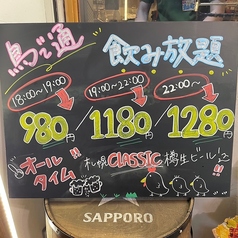 鳥で通 飲み放題
18:00~19:00 19:00~22:00 22:00~
980円/1180円/1280円
オール
タイム!! 札幌CLASSICの樽生ビール込
SAPPORO